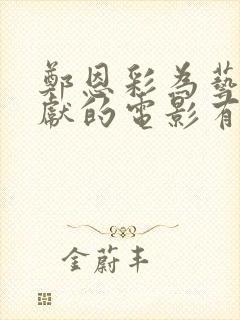 鄭恩彩為藝
獻的電影有
金蔚丰